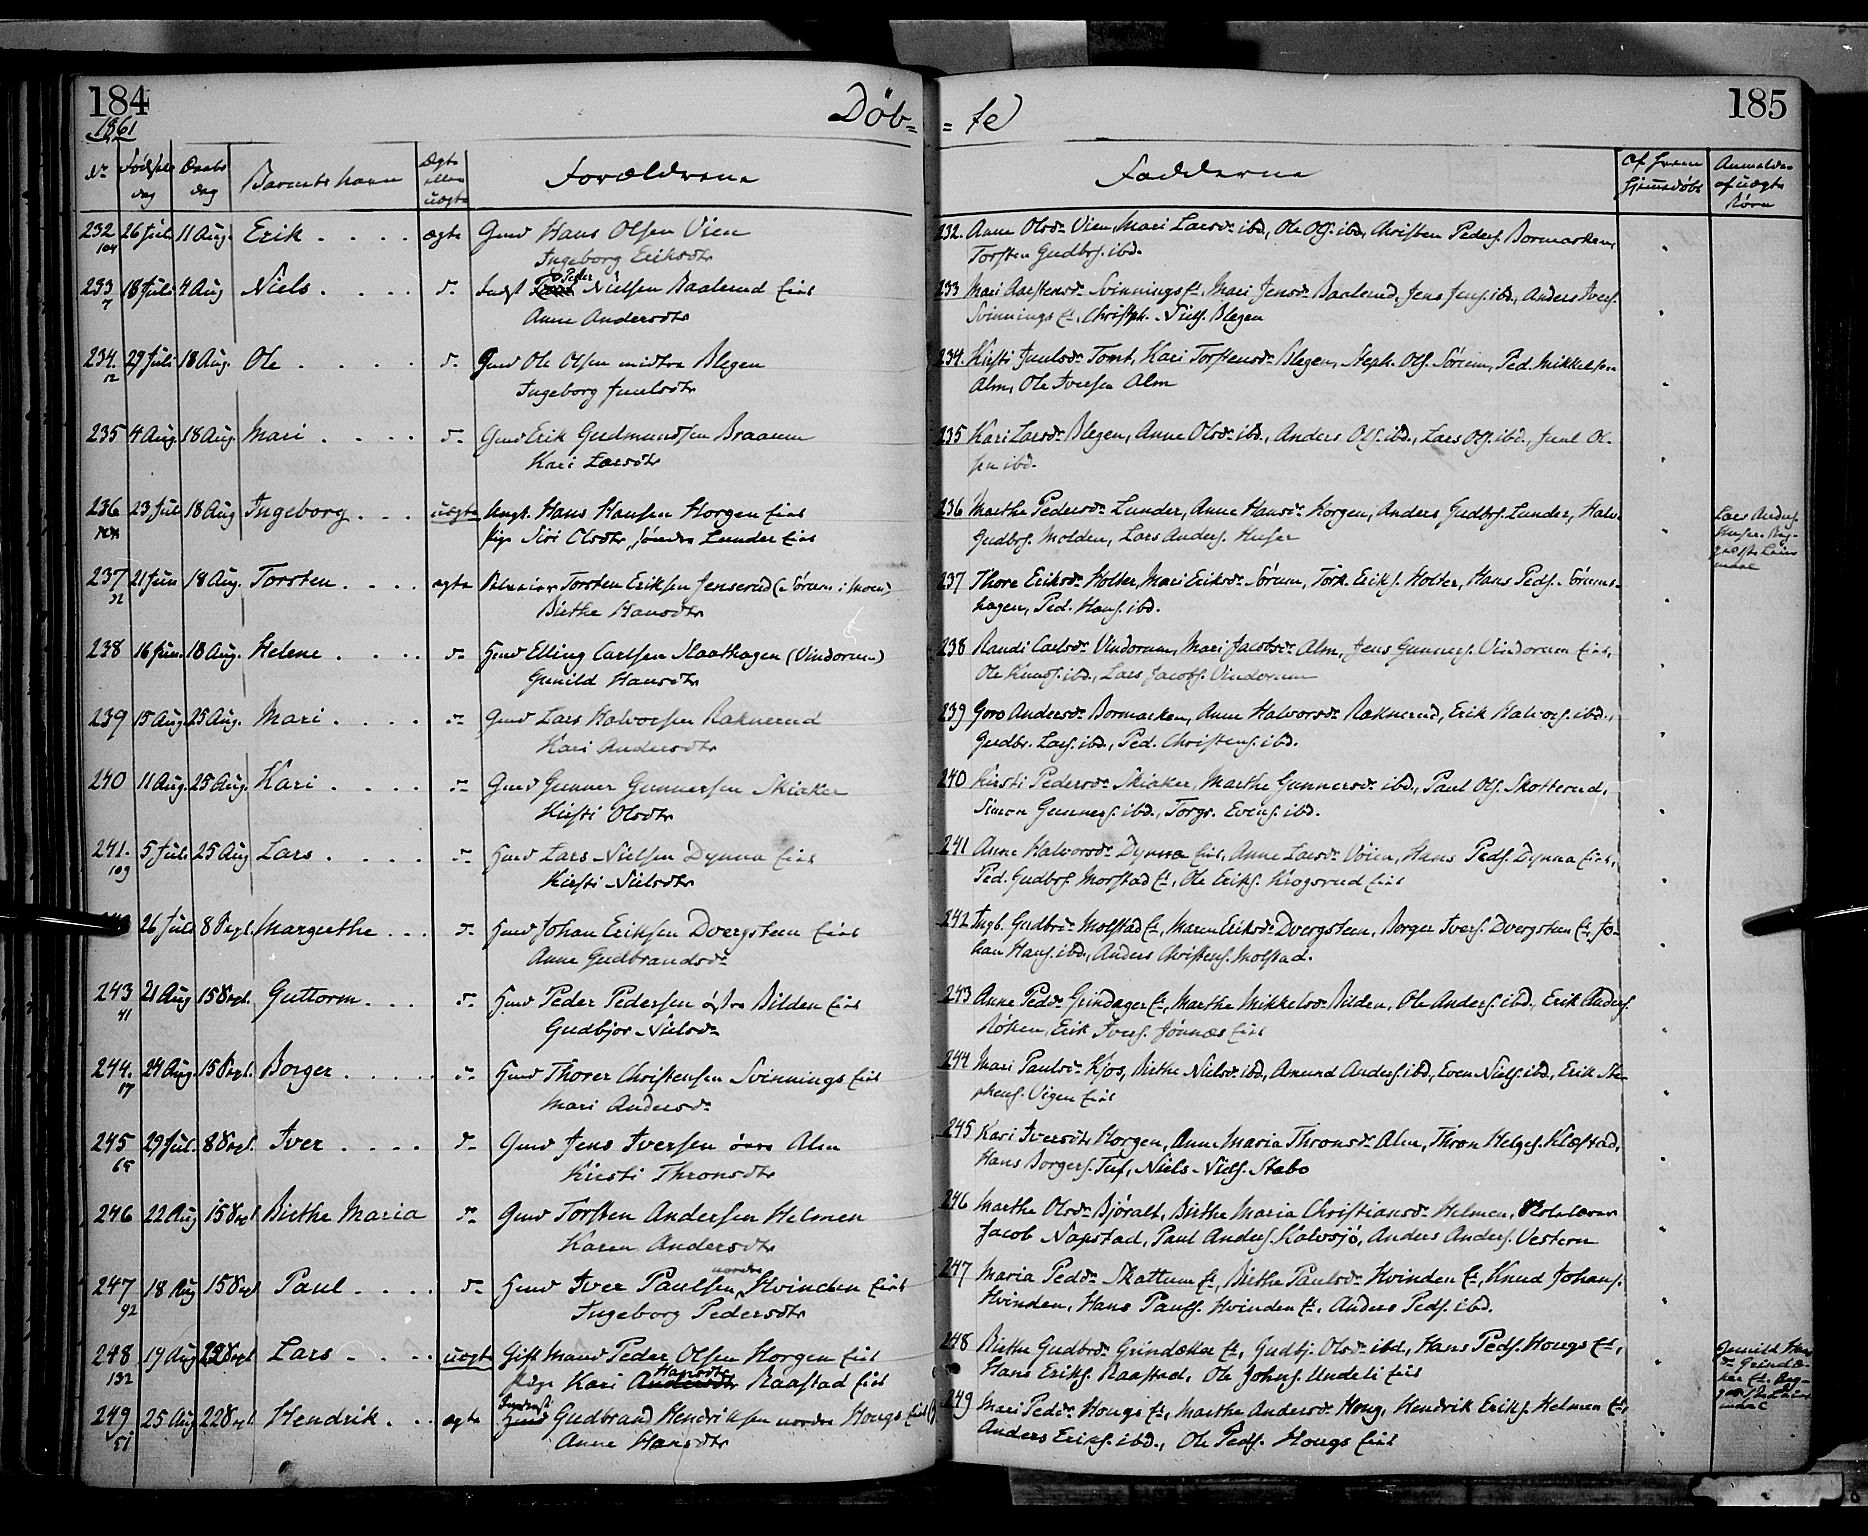 184
1861
Döb=
No
Fødsels
dag
Daabs
dag
Barnets Navn
Ægte
eller
uægte
Forældrene
232 26 Juli 11 Aug. Erik . . . . ægte Gmd Hans Olsen Vien
104 Ingeborg Eriksdtr
233 18 Juli 4 Aug Niels . . . . do Peder Nielsen Baalerud Eie
7 Anne Andersdtr
234. 29 Juli 18 Aug. Ole . . . . do Gmd Ole Olsen midtre Blegen
12 Ingeborg Juulsdtr
235 4 Aug. 18 Aug. Mari . . . . do Gmd Erik Gudmundsen Braaum
Kari Larsdtr
236 23 Juli 18 Aug Ingeborg . . . uægte Ungk. Hans Hansen Horgen Eie
Pige Siri Olsdtr, søndre Lunder Eie
237 21 Juni 18 Aug. Torsten . . . . ægte Torsten Eriksen Jenserud (Sørum i Moen)
32 Birthe Hansdtr
238 16 Juni 18 Aug. Helene . . . . do Hmd Elling Carlsen (Vindorum)
Gunild Hansdtr
239 15 Aug. 25 Aug. Mari . . . . do Gmd Lars Halvorsen Raknerud
Kari Andersdtr
240 11 Aug. 25 Aug. Kari . . . . do Gmd Gunner Gunnersen Skiaker
Kirsti Olsdtr
241. 5 Juli 25 Aug Lars . . . . do Hmd Lars Nielsen Dynna Eie
109 Kirsti Nielsdtr
26 Juli 8 Sept. Margrethe . . . do Hmd Johan Eriksen Dvergsteen Eie
Anne Gudbrandsdr
243 21 Aug 15 Sept. Guttorm . . . do Hmd Peder Pedersen østre Bilden Eie
41 Gudbjor Nielsdr
244. 24 Aug. 15 Sept. Borger . . . . do Hmd Thorer Christensen Svinnings Eie
17 Mari Andersdr
245 29 Jul. 8 Sept. Iver . . . . do Gmd Jens Iversen øvre Alm
65 Kirsti Thronsdtr
246 22 Aug 15 Sept Birthe Maria do Gmd Torsten Andersen Helmen
Karen Andersdtr
247 18 Aug 15 Sept Paul . . . . do Hmd Iver Paulsen nordre Hvinden Eie
92 Ingeborg Pedersdtr
248 17 Aug 22 Sept Lars . . . . uægte Gift Mand Peder Olsen Horgen Eie
132 Pige Kari Andersdtr Hansdtr Raastad Eie
249 25 Aug 22 Sept. Hendrik . . . ægte Gudbrand Hendriksen nordre Hougs Eie
51 Anne Hansdtr
185
= te
Fadderne
Om
hjemmedøbt
Anmelder
af uægte
Børn
232. Anne Olsdr Vien, Mari Larsdr ibd., Ole Ols. ibd., Christen Peders. Bormarken,
Torsten Gudbrs. ibd.
233 Mari Aarstensdr Svinnings Et, Mari Jensdr Baalerud, Jens Jens. ibd., Anders Ivers.
Svinnings Et, Christph. Niels. Blegen
234. Kirsti Juulsdr Tomt, Kari Torstensdr Blegen, Steph. Ols. Sørum, Ped. Mikkelsen
Alm, Ole Iversen Alm
235 Kari Larsdr Blegen, Anne Olsdr ibd., Anders Ols. ibd., Lars Ols. ibd., Juul Ol-
sen ibd.
236 Marthe Pedersdr Lunder, Anne Hansdr Horgen, Anders Gudbrs. Lunder, Halv.
Gudbrs. Molden, Lars Anders. Huser
Lars Anders.
Huser
237 Thore Eriksdr Holter, Mari Eriksdr Sørum, Tork. Eriks. Holter, Hans Peds. Sørums-
hagen, Ped. Hans. ibd.
238 Randi Carlsdr Vindorum, Mari Jacobsdr Alm, Jens Gunners. Vindorum Eie,
Ole Knuds. ibd., Lars Jacobs. Vindorum
239 Goro Andersdr Bormarken, Anne Halvorsdr Raknerud, Erik Halvors. ibd.,
Gudbr. Lars. ibd., Ped. Christens. ibd.
240 Kirsti Pedersdr Skiaker, Marthe Gunnersdr ibd., Paul Ols. Skotterud,
Simon Gunners. ibd., Torgr. Evens. ibd.
241 Anne Halvorsdr Dynna Eie, Anne Larsdr Vøien, Hans Peds. Dynna Eie,
Ped. Gudbrs. Morstad Et, Ole Eriks. Krogsrud Eie
242 Ingb. Gudbrdr Molstad Et, Maren Eriksdr Dvergsteen, Borger Ivers. Dvergsteen Et, Jo-
han Hans. ibd., Anders Christens. Molstad.
243 Anne Pedsdr Grindager Et, Marthe Mikkelsdr Bilden, Ole Anders. ibd., Erik Anders.
Røken, Erik Ivers. Jønnæs Eie
244 Mari Paulsdr Kjos, Birthe Nielsdr ibd., Amund Anders. ibd., Even Niels. ibd., Erik Ste-
phens. Vigen Eie
245 Kari Iversdtr Horgen, Anne Maria Thronsdr Alm, Thron Helges. Klæstad,
Hans Borgers. Tuf, Niels Niels. Stabo
246 Marthe Olsdr Bjøralt, Birthe Maria Christiansdr Helmen, Skolelærer
Jacob Napstad, Paul Anders. Kalvsjø, Anders Anders. Vestern
247 Maria Pedsdr Skattum Et, Birthe Paulsdr Hvinden Et, Knud Johans.
Hvinden, Hans Pauls. Hvinden Et, Anders Peds. ibd.
248 Birthe Gudbrdr Grindaker Et, Gudbj. Olsdr ibd., Hans Peds. Hougs Et,
Hans Eriks. Raastad, Ole Johns. Undeli Eie
Gunild
Grinda-
ker Et.
249 Mari Pedsdr Hougs Et, Marthe Andersdr Houg, Hendrik Eriks. Helmen Et,
Anders Eriks. ibd., Ole Peds. Hougs Eie